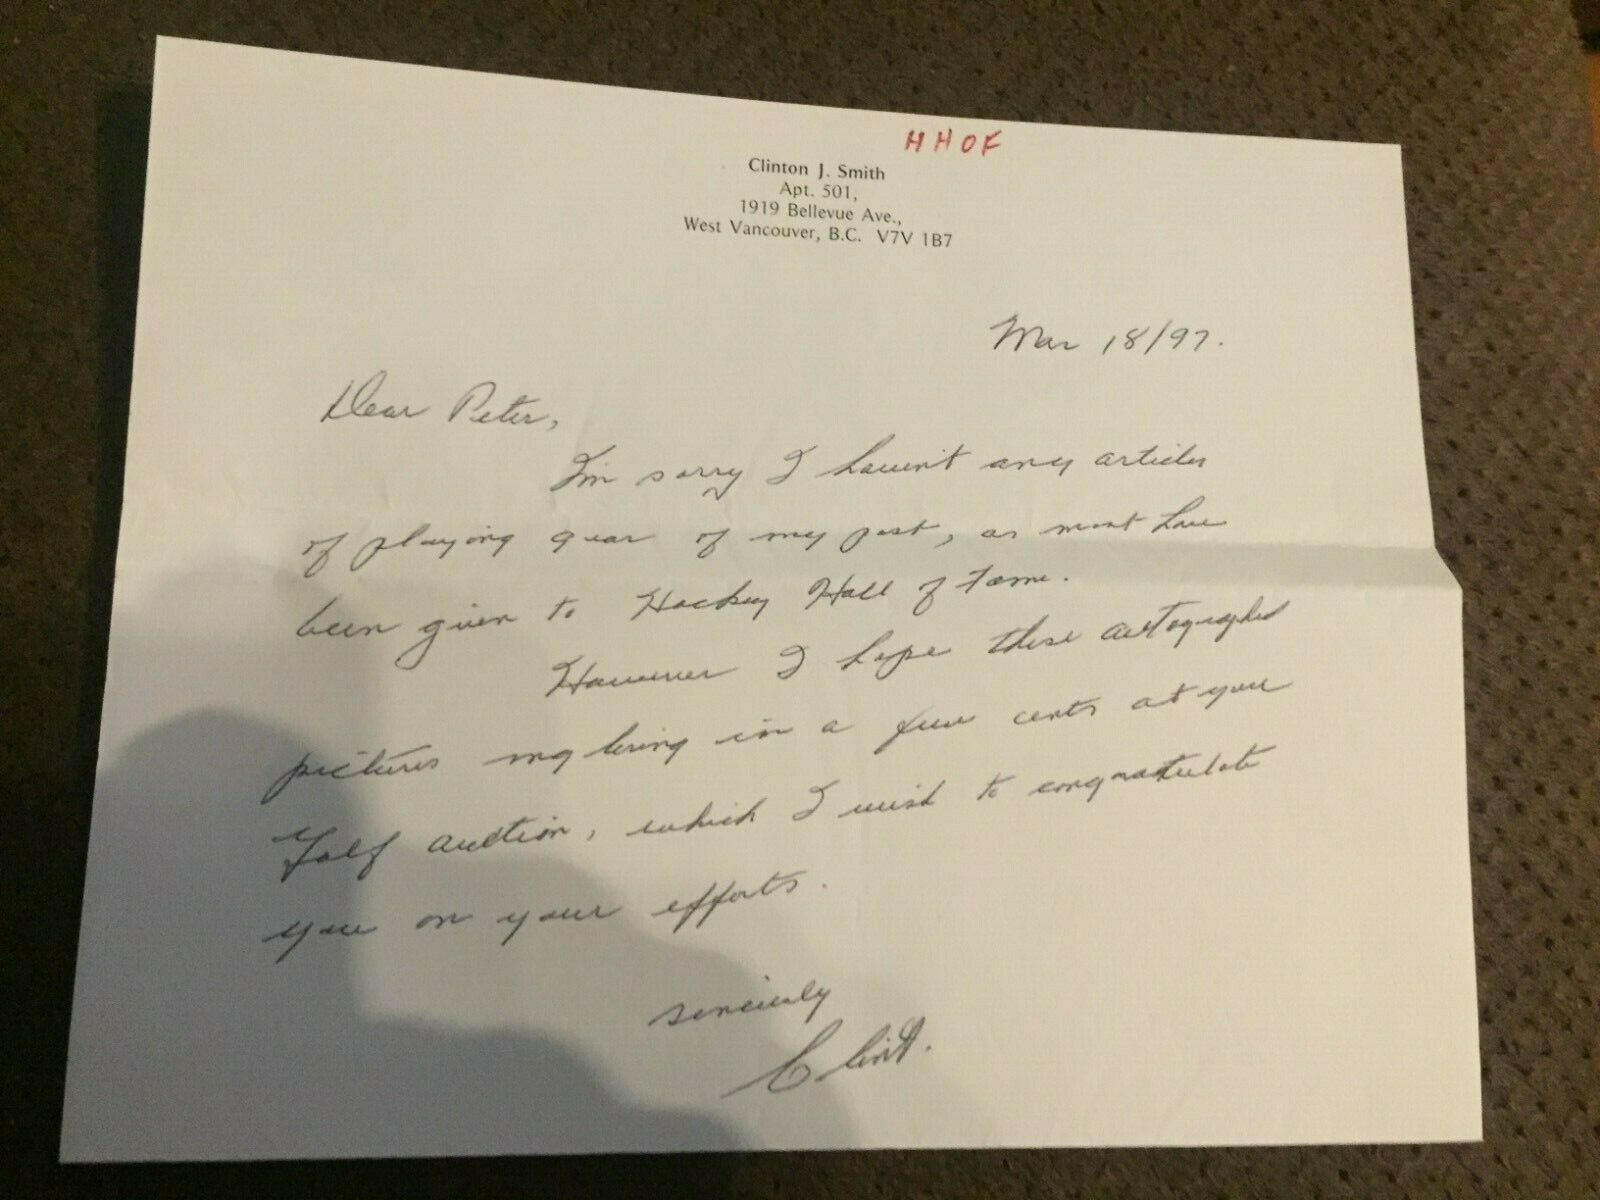 HHOF
Clinton J. Smith
Apt. 501,
1919 Bellevue Ave.,
West Vancouver, B.C. V7V 1B7
Mar 18/97.
Dear Peter,
I'm sorry I haven't any articles
of playing gear of my past, as most have
been given to Hockey Hall of Fame.
However I hope these autographed
pictures may bring in a few cents at your
Golf auction, which I wish to congratulate
you on your efforts.
Sincerely
Clint.